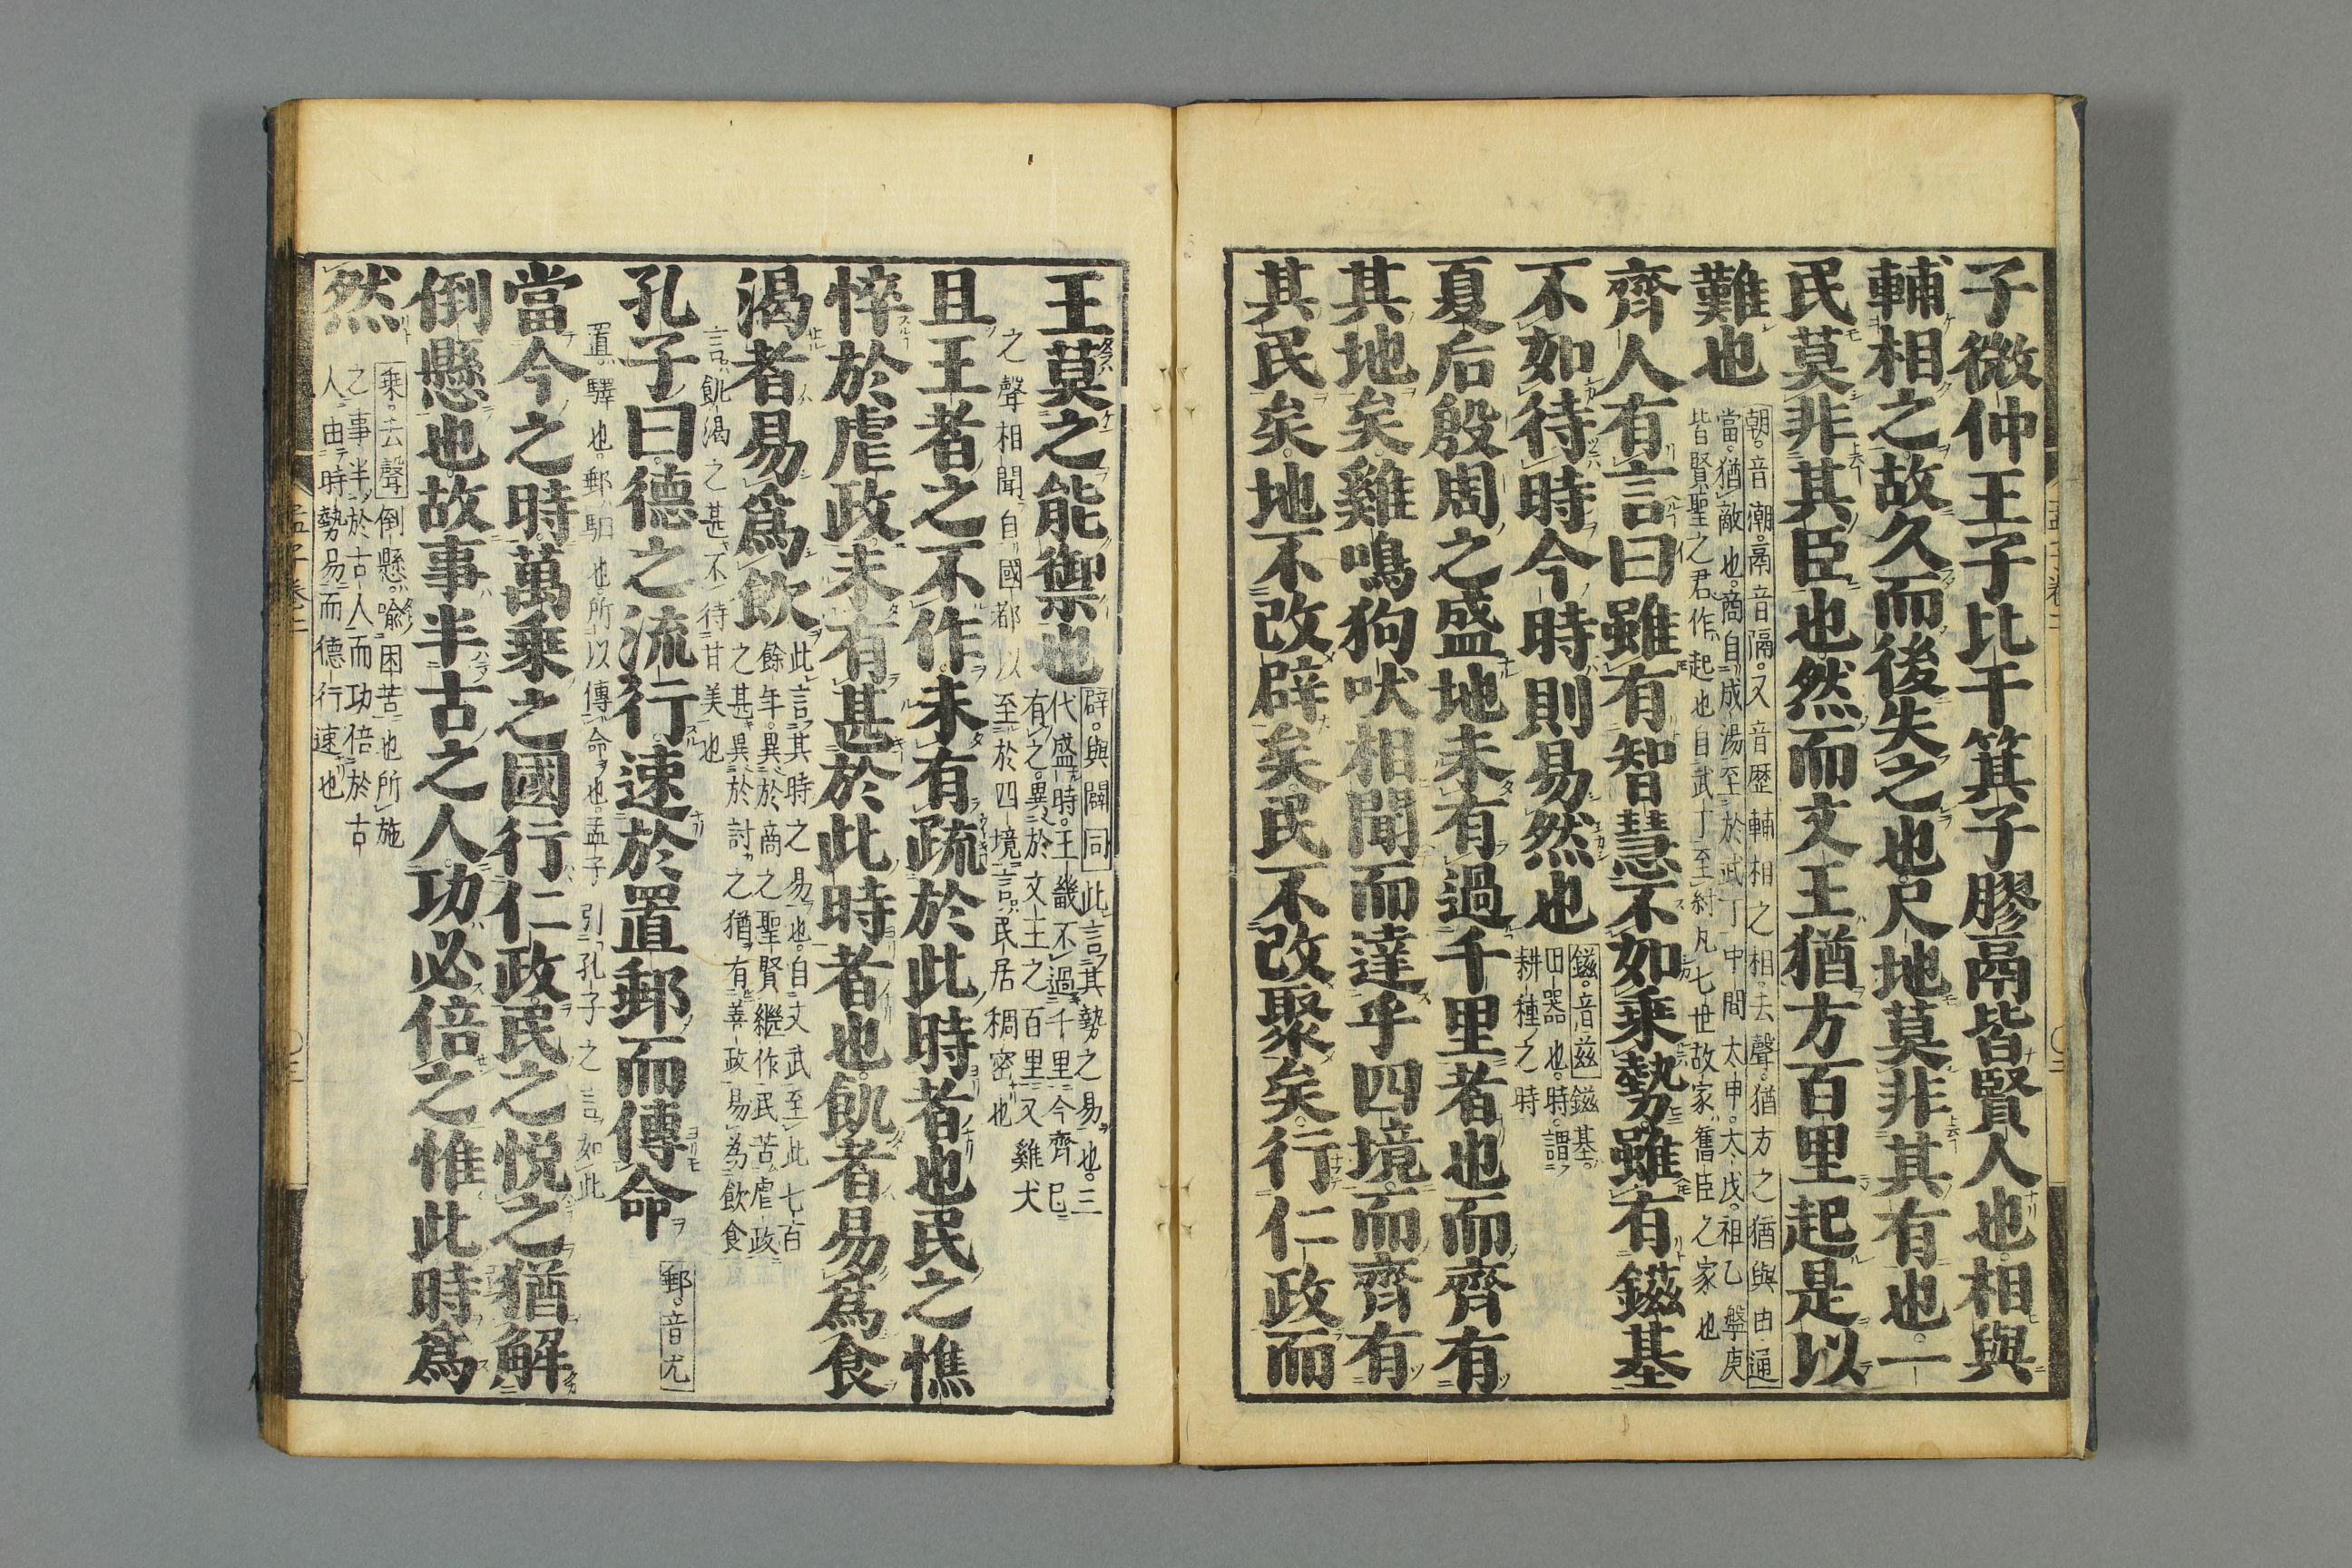 子微仲王子比干箕子膠鬲皆賢人也相與
輔相之故久而後失之也尺地莫非其有也一
民莫非其臣也然而文王猶方百里起是以
難也
朝音潮鬲音隔又音歷輔相之相去聲猶方之猶與由通
當猶敵也商自成湯至於武丁中間太甲太戊祖乙盤庚
皆賢聖之君作起也自武丁至紂凡七世故家舊臣之家也
齊人有言曰雖有智慧不如乘勢雖有鎡基
不如待時今時則易然也
鎡音茲鎡基
田器也時謂
耕種之時
夏后殷周之盛地未有過千里者也而齊有
其地矣雞鳴狗吠相聞而達乎四境而齊有
其民矣地不改辟矣民不改聚矣行仁政而
王莫之能禦也
辟與闢同此言其勢之易也三
代盛時王畿不過千里今齊已
有之異於文王之百里又雞犬
之聲相聞自國都以至於四境言民居稠密也
且王者之不作未有疏於此時者也民之憔
悴於虐政未有甚於此時者也飢者易爲食
渴者易爲飲
此言其時之易也自文武至此七百
餘年異於商之聖賢繼作民苦虐政
之甚異於討之猶有善政易為飲食
言飢渴之甚不待甘美也
孔子曰德之流行速於置郵而傳命
郵音尤
置驛也郵馹也所以傳命也孟子引孔子之言如此
當今之時萬乘之國行仁政民之悅之猶解
倒懸也故事半古之人功必倍之惟此時爲
然
乘去聲倒懸喻困苦也所施
之事半於古人而功倍於古
人由時勢易而德行速也